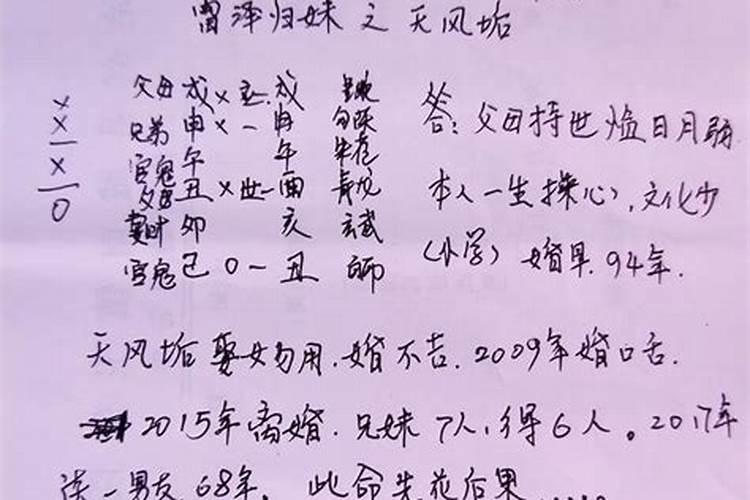 雷泽归妹之天风垢
父母戌×应戌 答:父母持世临日月弱
兄弟申×一申
官鬼午 午 朱雀
丑×世一酉 青龙 本人一生操心,文化少
妻财卯 亥 玄武
官鬼巳0一丑 (小学)婚早.94年.
天风垢娶女勿用.婚不吉.2009年婚口舌.
2015年离婚.兄妹7人,得6人。2017年
一男友68年,此命先花后果.....